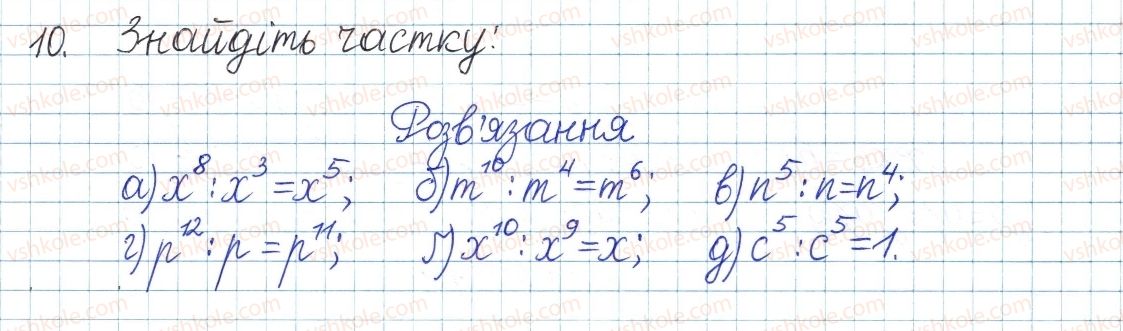 10. Знайдіть частку:
Розв'язання
а) x⁸ : x³ = x⁵; б) m¹⁰ : m⁴ = m⁶; в) n⁵ : n = n⁴;
г) p¹² : p = p¹¹; ґ) x¹⁰ : x⁹ = x; д) c⁵ : c⁵ = 1.
vshkole.com